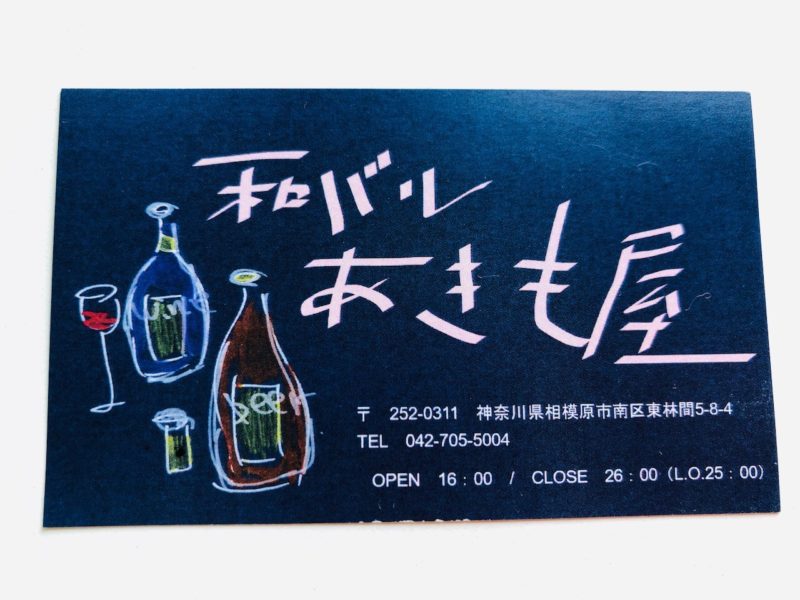 和バル
あきも屋
wine
beer
〒 252-0311 神奈川県相模原市南区東林間5-8-4
TEL 042-705-5004
OPEN 16：00 / CLOSE 26：00（L.O.25：00）